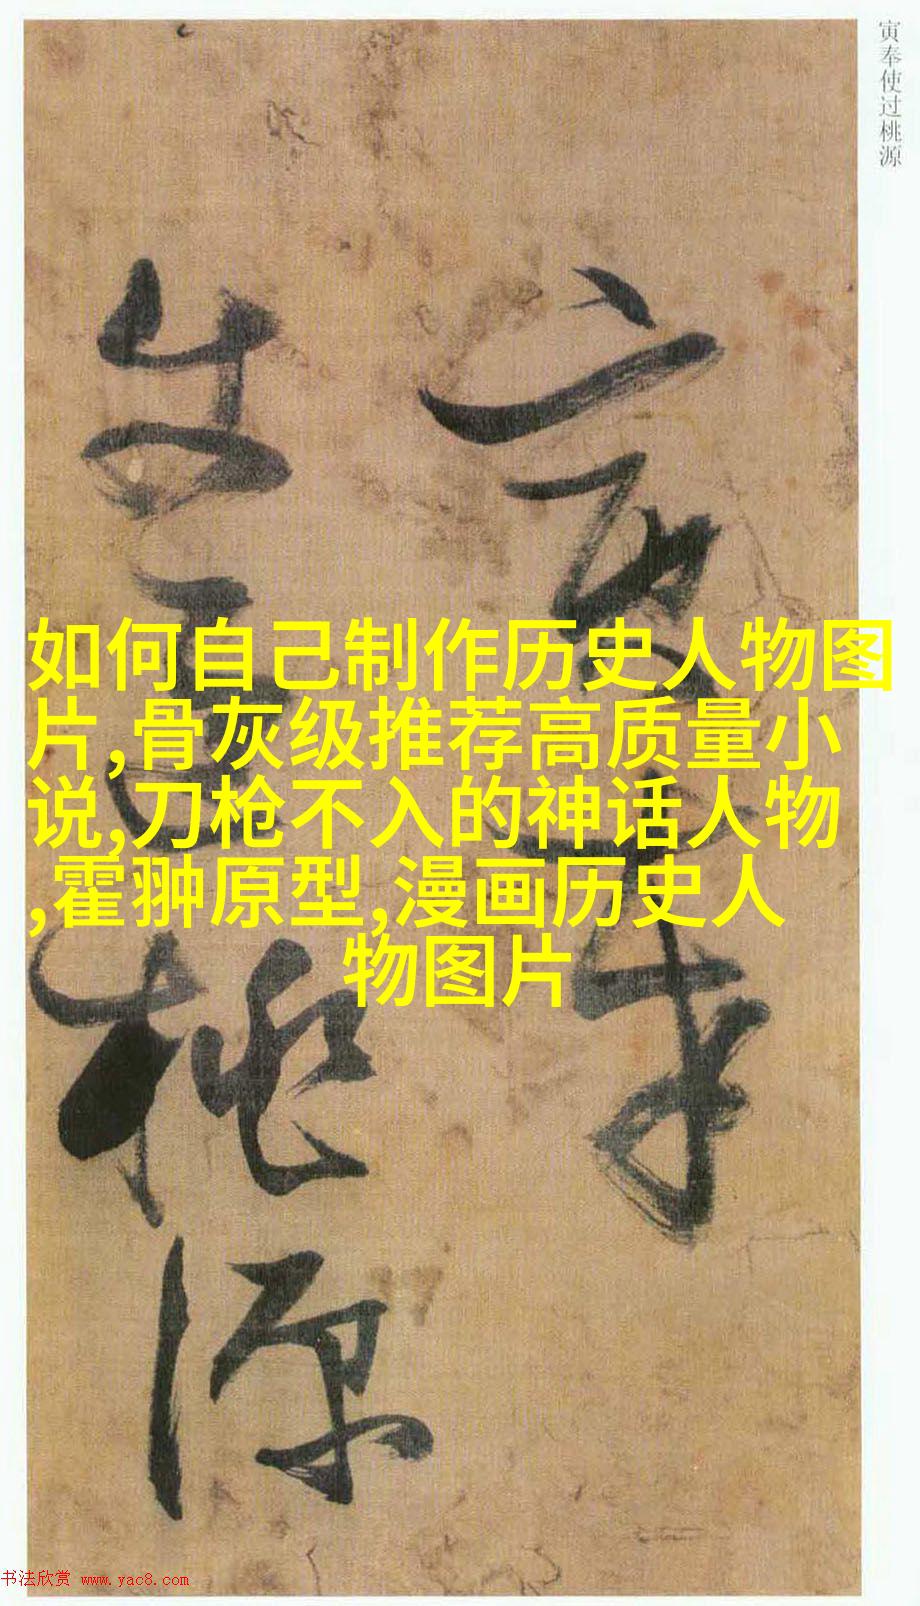 寅奉使过桃源
寅奉
使过桃源
如何自己制作历史人物图
片,骨灰级推荐高质量小
说,刀枪不入的神话人物
,霍翀原型,漫画历史人
物图片
书法欣赏 www.yac8.com